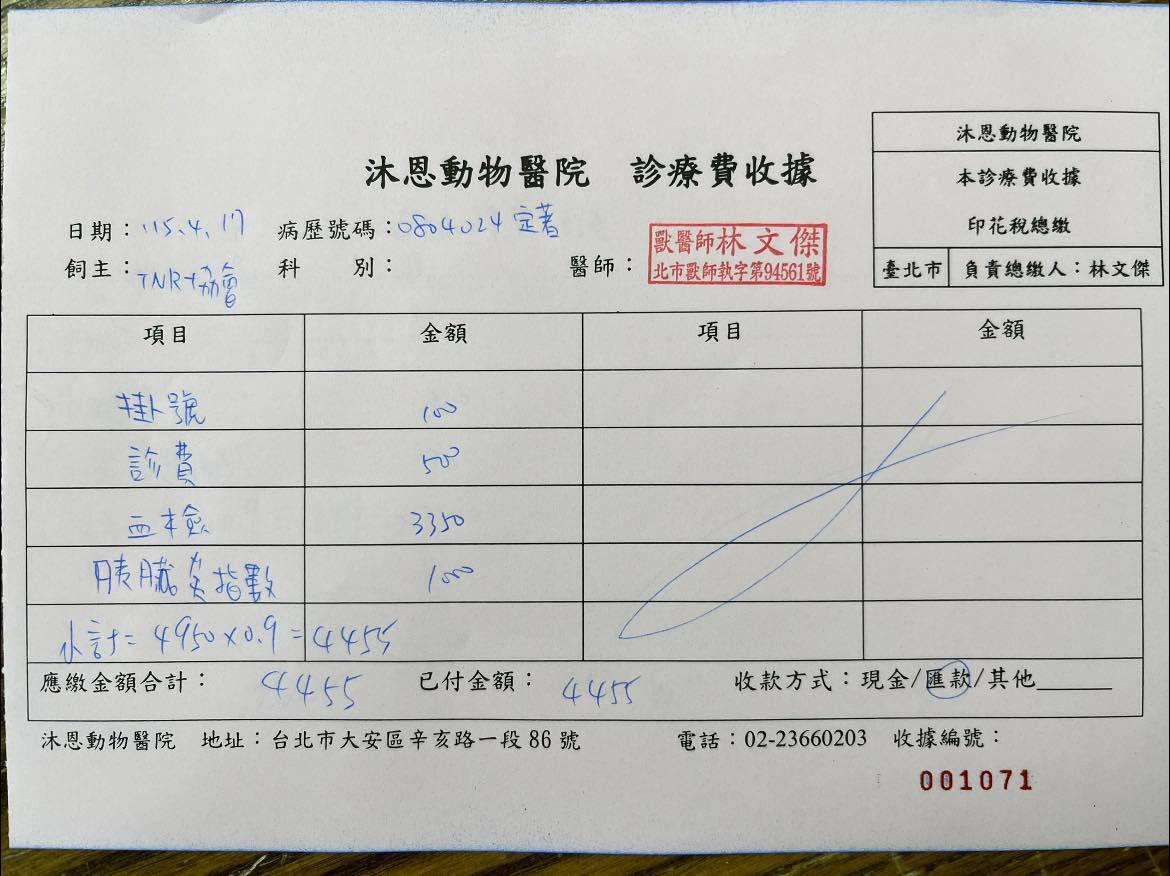 沐恩動物醫院
本診療費收據
印花稅總繳
臺北市 負責總繳人：林文傑
沐恩動物醫院 診療費收據
日期：115.4.17 病歷號碼：0804024 定著
飼主：TNR協會 科 別： 醫師：
獸醫師林文傑
北市獸師執字第94561號
項目 金額 項目 金額
掛號 100
診費 500
血檢 3350
胰臟炎指數 1000
小計=4950×0.9=4455
應繳金額合計：4455 已付金額：4455 收款方式：現金/匯款/其他______
沐恩動物醫院 地址：台北市大安區辛亥路一段86號 電話：02-23660203 收據編號：
001071